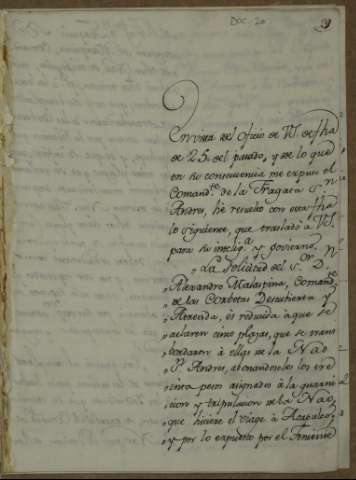 DOC. 20
En vista del Oficio de V.S. de fha
de 25. del pasado, y de lo que
en su consecuencia me expuso el
Comand.te de la Fragata S.n
Andres, hé resuelto con esta fha
lo siguiente, que traslado à V.S.
para su intelig.a y govierno.
„ La solicitud del S.or D.n
„ Alexandro Malaspina, Comand.te
„ de las Corbetas Descubierta y
„ Atrevida, és reducida à que se
„ aclaren cinco plazas, que se trans
„ bordaron à ellas de la Nao
„ S.n Andres, abonandoles los
„ pesos asignados à la guarni
„ cion y tripulacion de la Nao,
„ que hiciere el viage à Acapulco,
„ y por lo expuesto por el Teniente